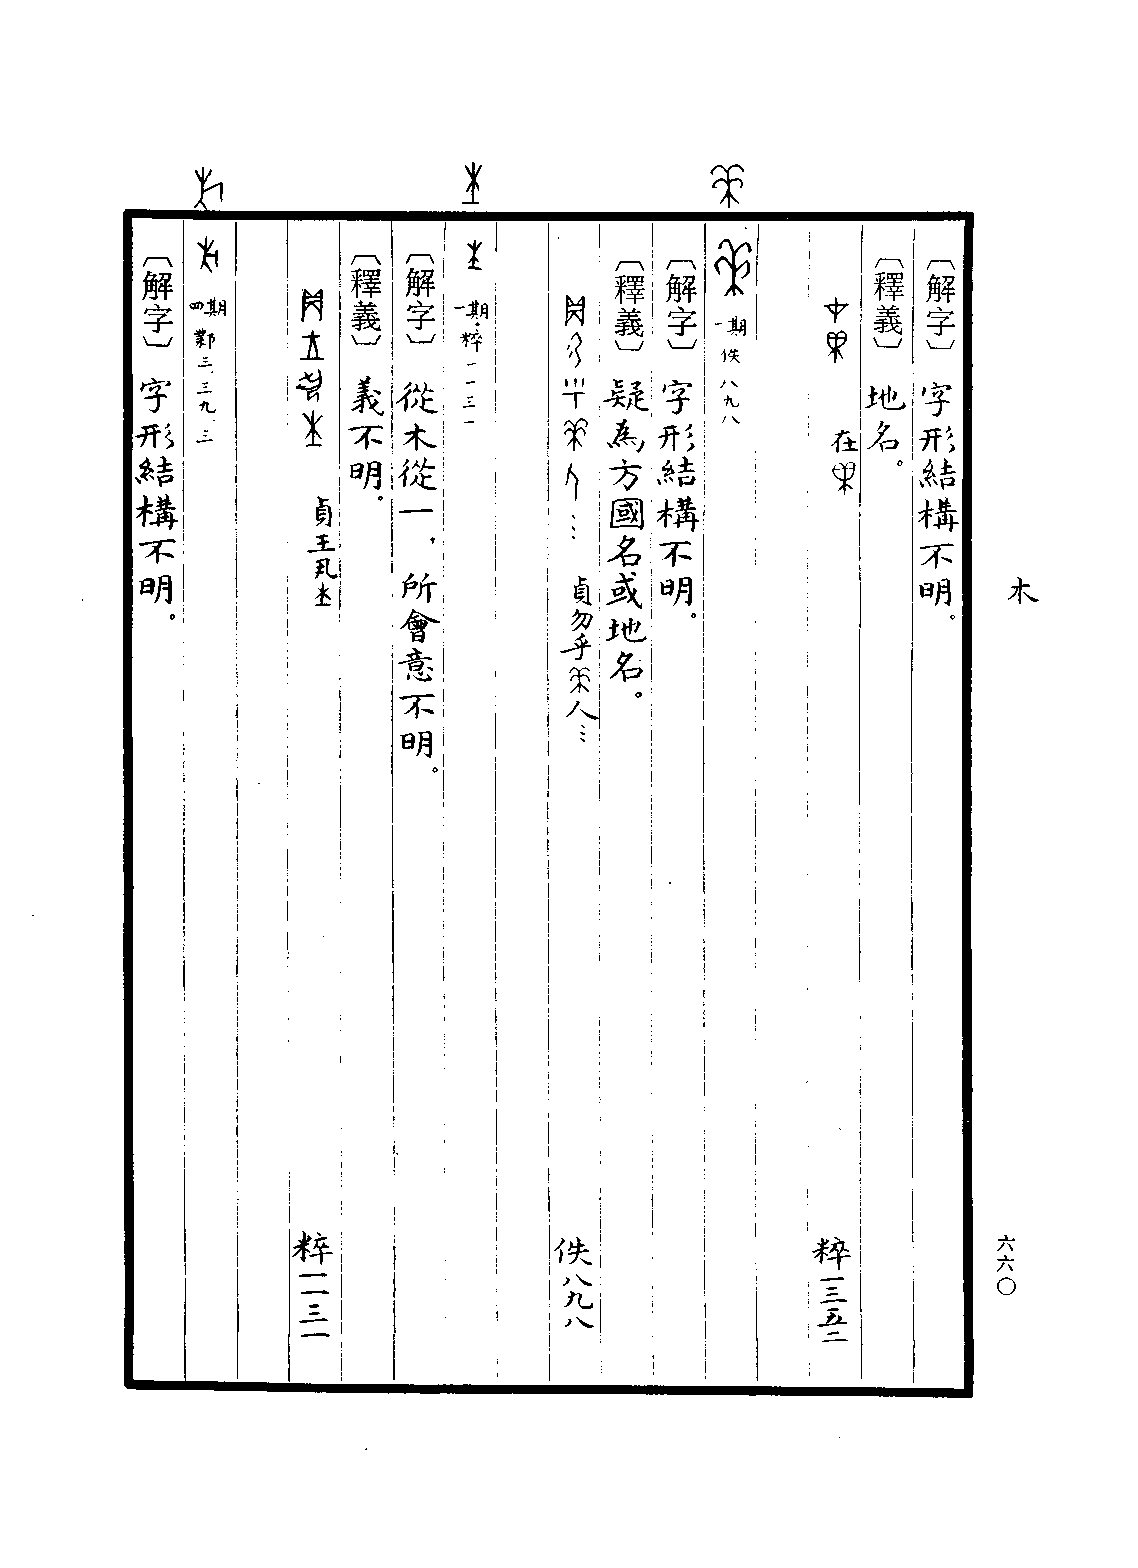 木
六六〇
〔解字〕 字形結構不明。
〔釋義〕 地名。
在 粹一三五二
一期 佚八九八
〔解字〕 字形結構不明。
〔釋義〕 疑為方國名或地名。
貞勿乎 人… 佚八九八
一期 粹一一三一
〔解字〕 從木從一,所會意不明。
〔釋義〕 義不明。
貞王 粹一一三一
四期 鄴三、三九、三
〔解字〕 字形結構不明。